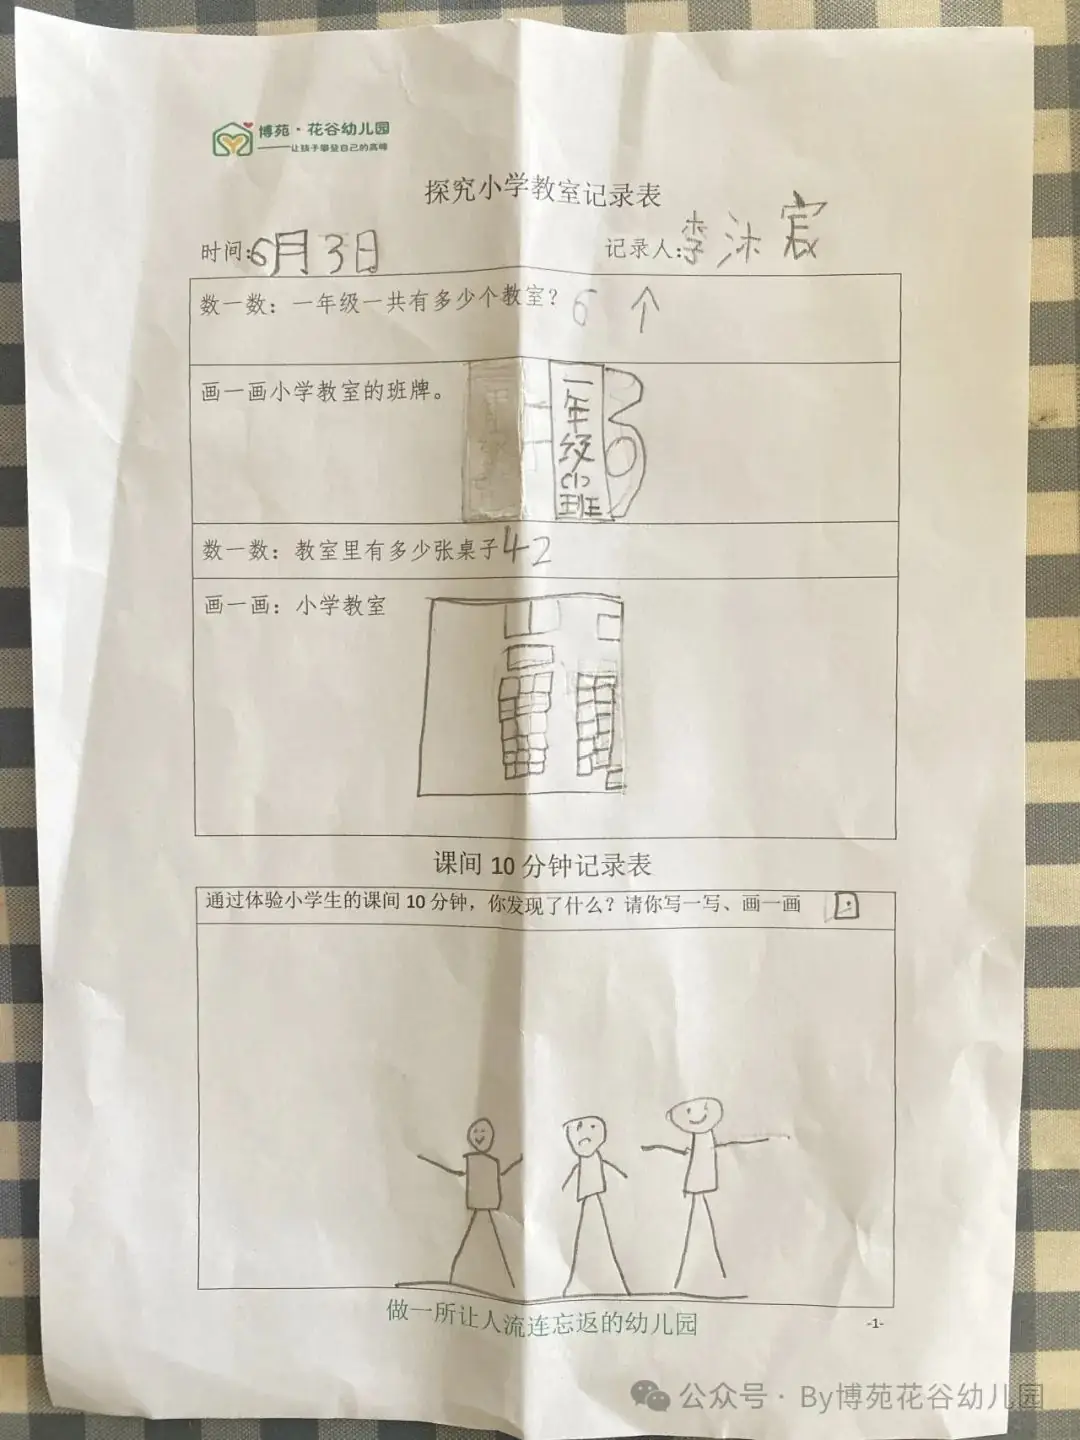 博苑·花谷幼儿园
——让孩子攀登自己的高峰
探究小学教室记录表
时间:6月3日 记录人:李沐宸
数一数：一年级一共有多少个教室？6个
画一画小学教室的班牌。
一年级
(1)
班
数一数：教室里有多少张桌子42
画一画：小学教室
课间10分钟记录表
通过体验小学生的课间10分钟，你发现了什么？请你写一写、画一画
做一所让人流连忘返的幼儿园
-1-
公众号·By博苑花谷幼儿园